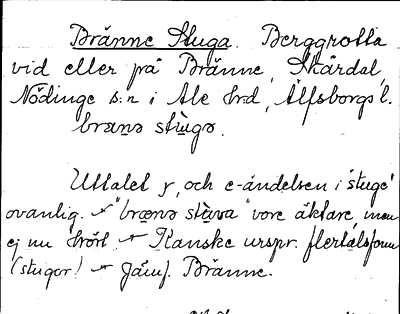 Bränne Stuga. Berggrotta
vid eller på Bränne, Skårdal,
Nödinge s:n i Ale Hrd, Älfsborgs l.
brænə stùgə.
Uttalet g, och e-ändelsen i "stuge"
ovanlig. "brænə stùva" vore äktare, men
ej nu hört. Kanske urspr. flertalsform
(stugor). Jämf. Bränne.